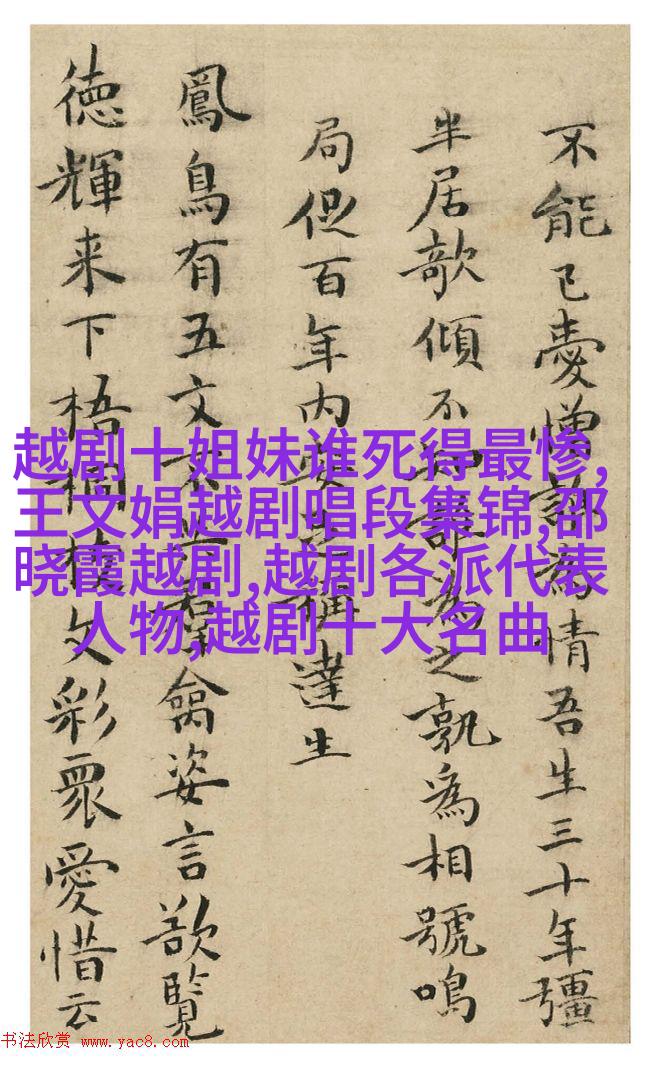 不能已愛憎為情吾生三十年彊
半居欹傾不為之孰為相號鳴
局促百年内稱達生
鳳鳥有五文禽姿言欲覽
徳輝来下梧桐棲文彩眾愛惜云
越剧十姐妹谁死得最惨,
王文娟越剧唱段集锦,邵
晓霞越剧,越剧各派代表
人物,越剧十大名曲
书法欣赏 www.yac8.com